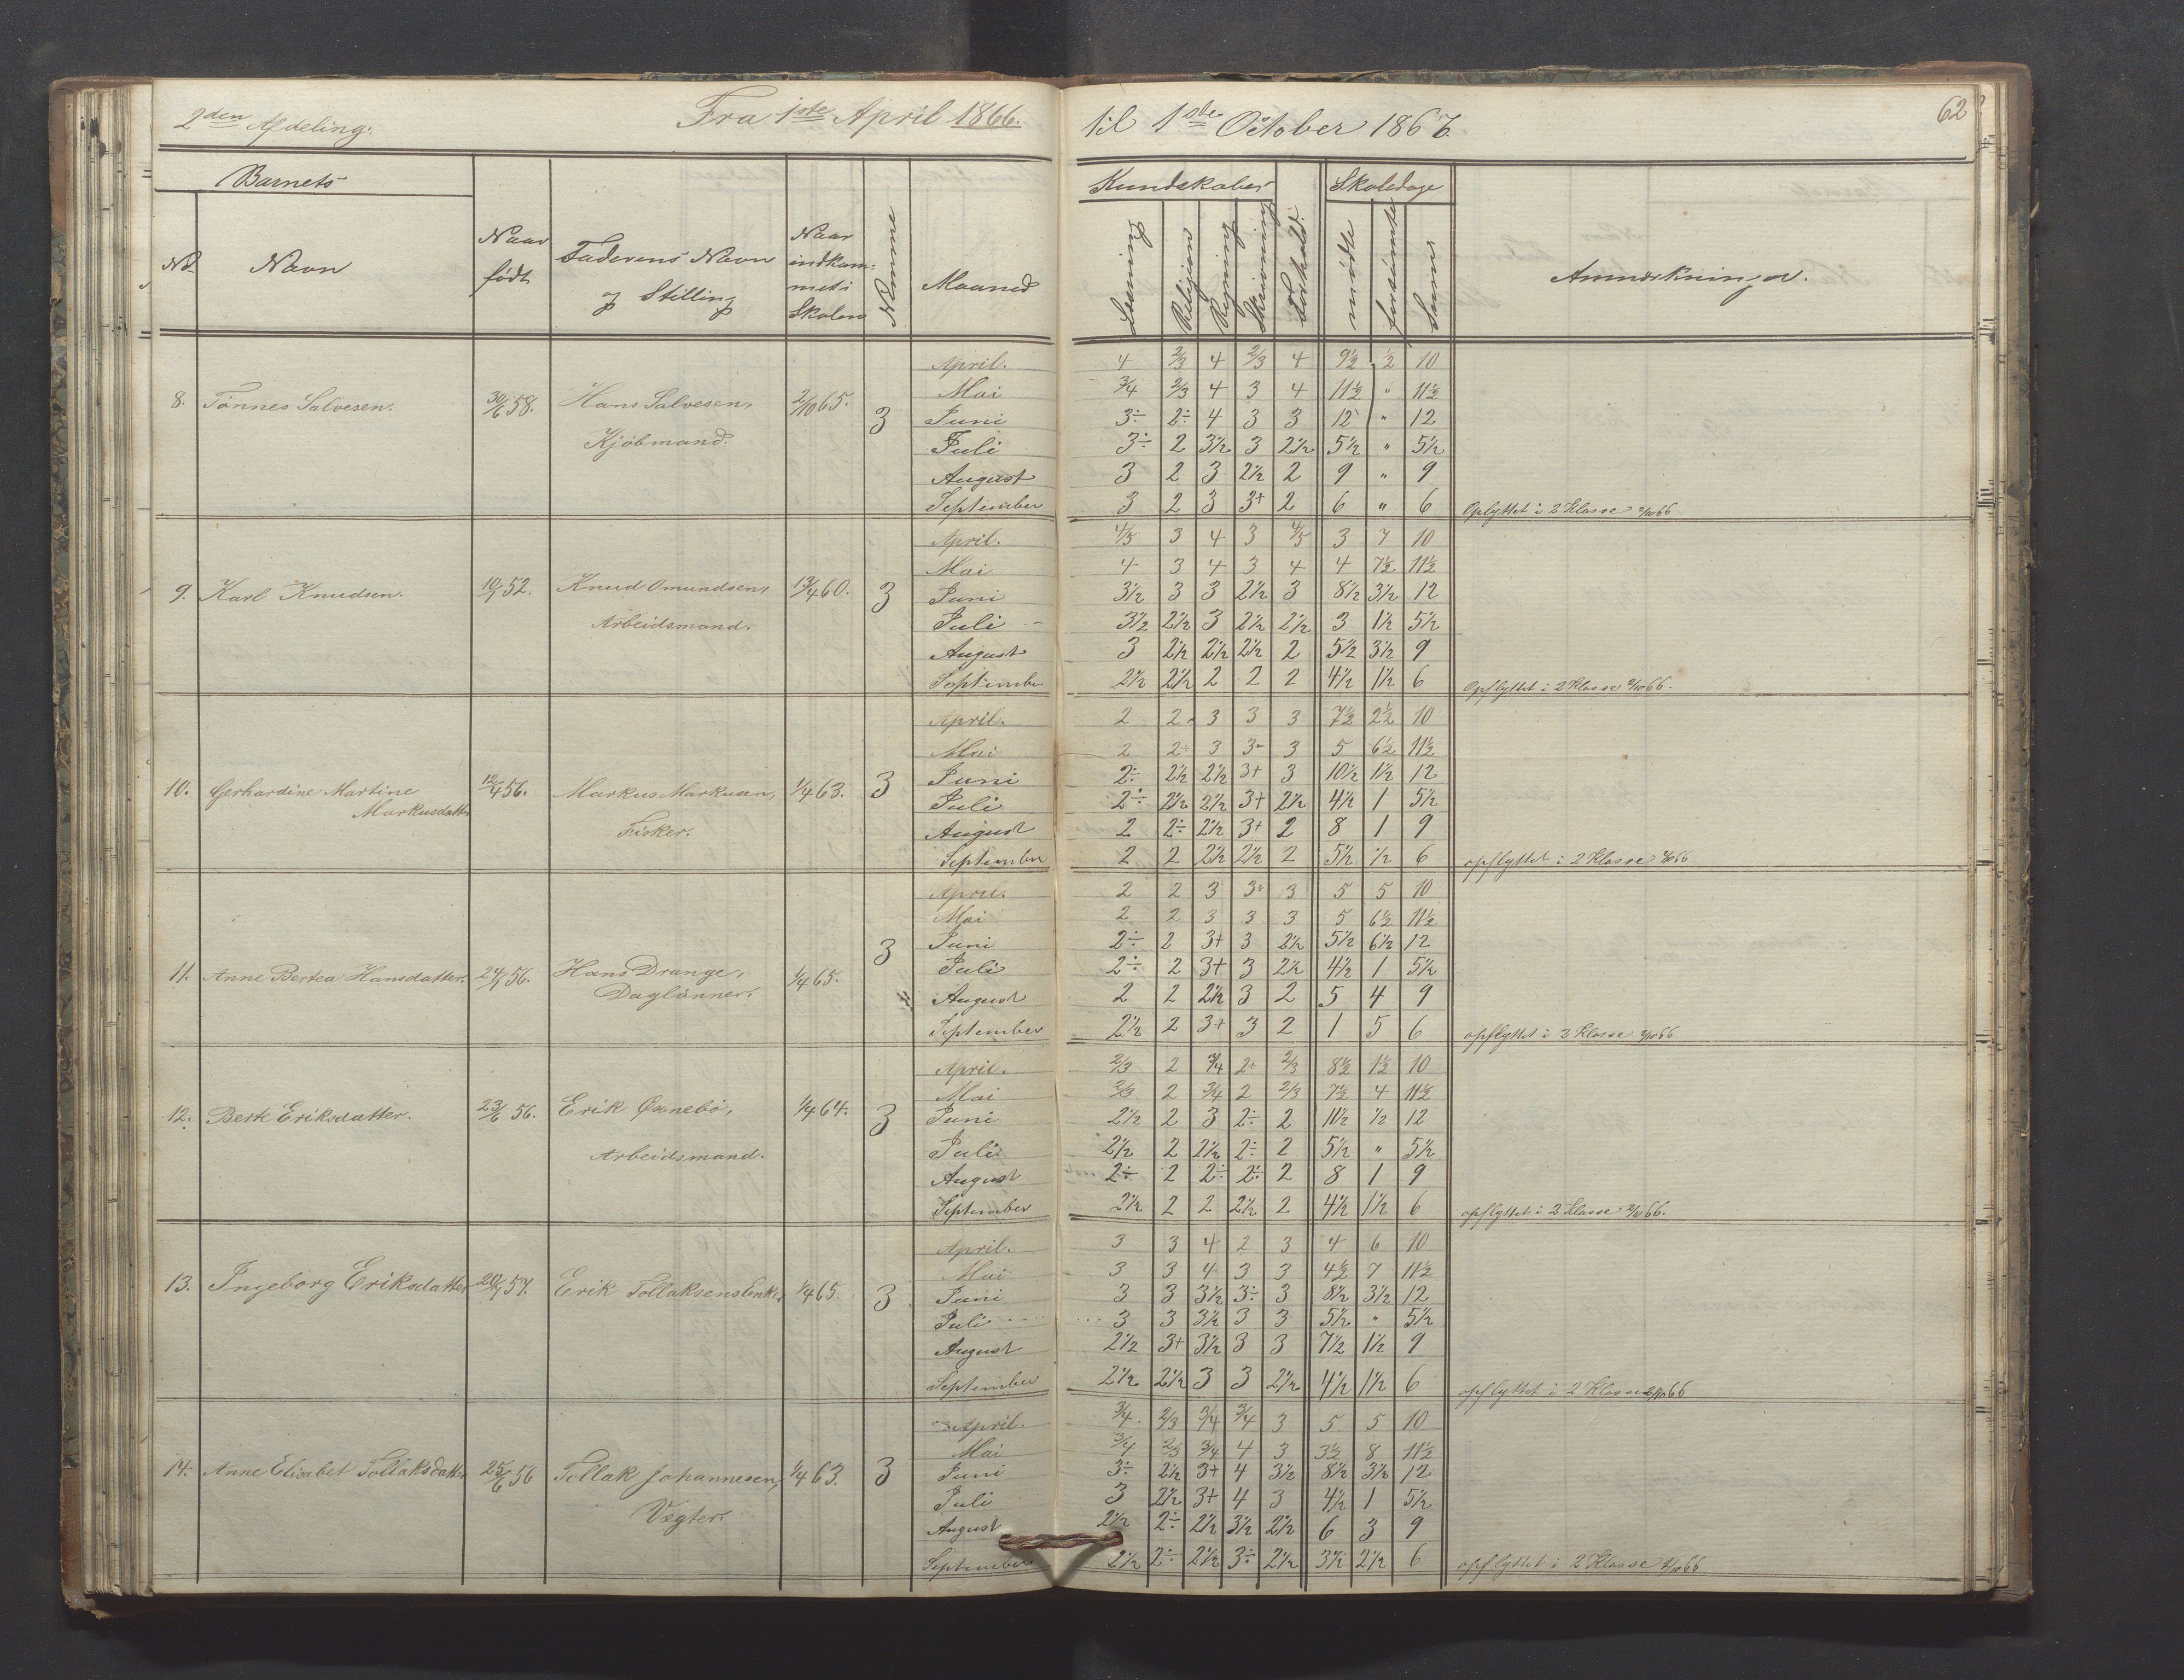 2den Afdeling. Fra 1ste April 1866. til 1ste October 1866. 62
Barnets Kundskaber Skoledage
No. Navn Naar født Faderens Navn og Stilling Naar indkommet i Skolen Nummer Maaned Læsning Religion Regning Skrivning Forhold. mødte forsømte Sum Anmærkninger.
April. 4 2/3 4 2/3 4 9½ ½ 10
Mai 3/4 2/3 4 3 4 11½ " 11½
8. Tønnes Salvesen. 30/6 58. Hans Salvesen, 2/10 65. 3 Juni 3÷ 2÷ 4 3 3 12 " 12
Kjøbmand. Juli 3÷ 2 3½ 3 2½ 5½ " 5½
August 3 2 3 2½ 2 9 " 9
September 3 2 3 3+ 2 6 " 6 Oplyttet i 2 Klasse 2/10 66
April. 4/5 3 4 3 4/5 3 7 10
Mai 4 3 4 3 4 4 7½ 11½
9. Karl Knudsen. 10/1 52. Knud Omundsen, 13/4 60. 3 Juni 3½ 3 3 2½ 3 8½ 3½ 12
Arbeidsmand. Juli 3½ 2½ 3 2½ 2½ 3 1½ 5½
August 3 2½ 2½ 2½ 2 5½ 3½ 9
September 2½ 2½ 2 2 2 4½ 1½ 6 Opflyttet i 2 Klasse 2/10 66.
April. 2 2 3 3 3 7½ 2½ 10
Mai 2 2÷ 3 3÷ 3 5 6½ 11½
10. Gerhardine Martine 12/4 56. Markus Markusen, 1/4 63. 3 Juni 2÷ 2½ 2½ 3+ 3 10½ 1½ 12
Markusdatter Juli 2÷ 2½ 2½ 3+ 2½ 4½ 1 5½
Fisker. August 2 2÷ 2½ 3+ 2 8 1 9
September 2 2 2½ 2½ 2 5½ ½ 6 opflyttet i 2 Klasse 2/10 66
April. 2 2 3 3÷ 3 5 5 10
Mai 2 2 3 3 3 5 6½ 11½
3 Juni 2÷ 2 3+ 3 2½ 5½ 6½ 12
11. Anne Bertea Hansdatter. 56. Hans Drange, 1/4 65. Juli 2÷ 2 3+ 3 2½ 4½ 1 5½
Daglønner. August 2 2 2½ 3 2 5 4 9
September 2½ 2 3+ 3 2 1 5 6 opflyttet i 2 Klasse 2/10 66
April. 2/3 2 3/4 2÷ 2/3 8½ 1½ 10
Mai 2/3 2 3/4 2 2/3 7½ 4 11½
12. Berte Eriksdatter. 23/6 56. Erik Øxnebø, 1/4 64. 3 Juni 2½ 2 3 2÷ 2 11½ ½ 12
Arbeidsmand. Juli 2½ 2 2½ 2÷ 2 5½ " 5½
August 2÷ 2 2÷ 2÷ 2 8 1 9
September 2½ 2 2 2½ 2 4½ 1½ 6 opflyttet i 2 Klasse 2/10 66.
April. 3 3 4 2 3 4 6 10
Mai 3 3 4 3 3 4½ 7 11½
13. Ingeborg Eriksdatter 57. Erik Tollaksens Enke, 1/4 65. 3 Juni 3 3 3½ 3÷ 3 8½ 3½ 12
Juli 3 3 3½ 3 3 5½ " 5½
August 2½ 3+ 3½ 3 3 7½ 1½ 9
September 2½ 2½ 3 3 2½ 4½ 1½ 6 opflyttet i 2 Klasse 2/10 66
April. 3/4 2/3 3/4 3/4 3 5 5 10
Mai 3/4 2/3 3/4 4 3 3½ 8 11½
14. Anne Elisabet Tollaksdatter 25/6 56 Tollak Johannesen, 1/4 63. 3 Juni 3÷ 2½ 3+ 4 3½ 8½ 3½ 12
Juli 3 2½ 3+ 4 3 4½ 1 5½
Vægter. August 2½ 2÷ 2½ 3½ 2½ 6 3 9
September 2½ 2÷ 2½ 3÷ 2½ 3½ 2½ 6 opflyttet i 2 Klasse 2/10 66